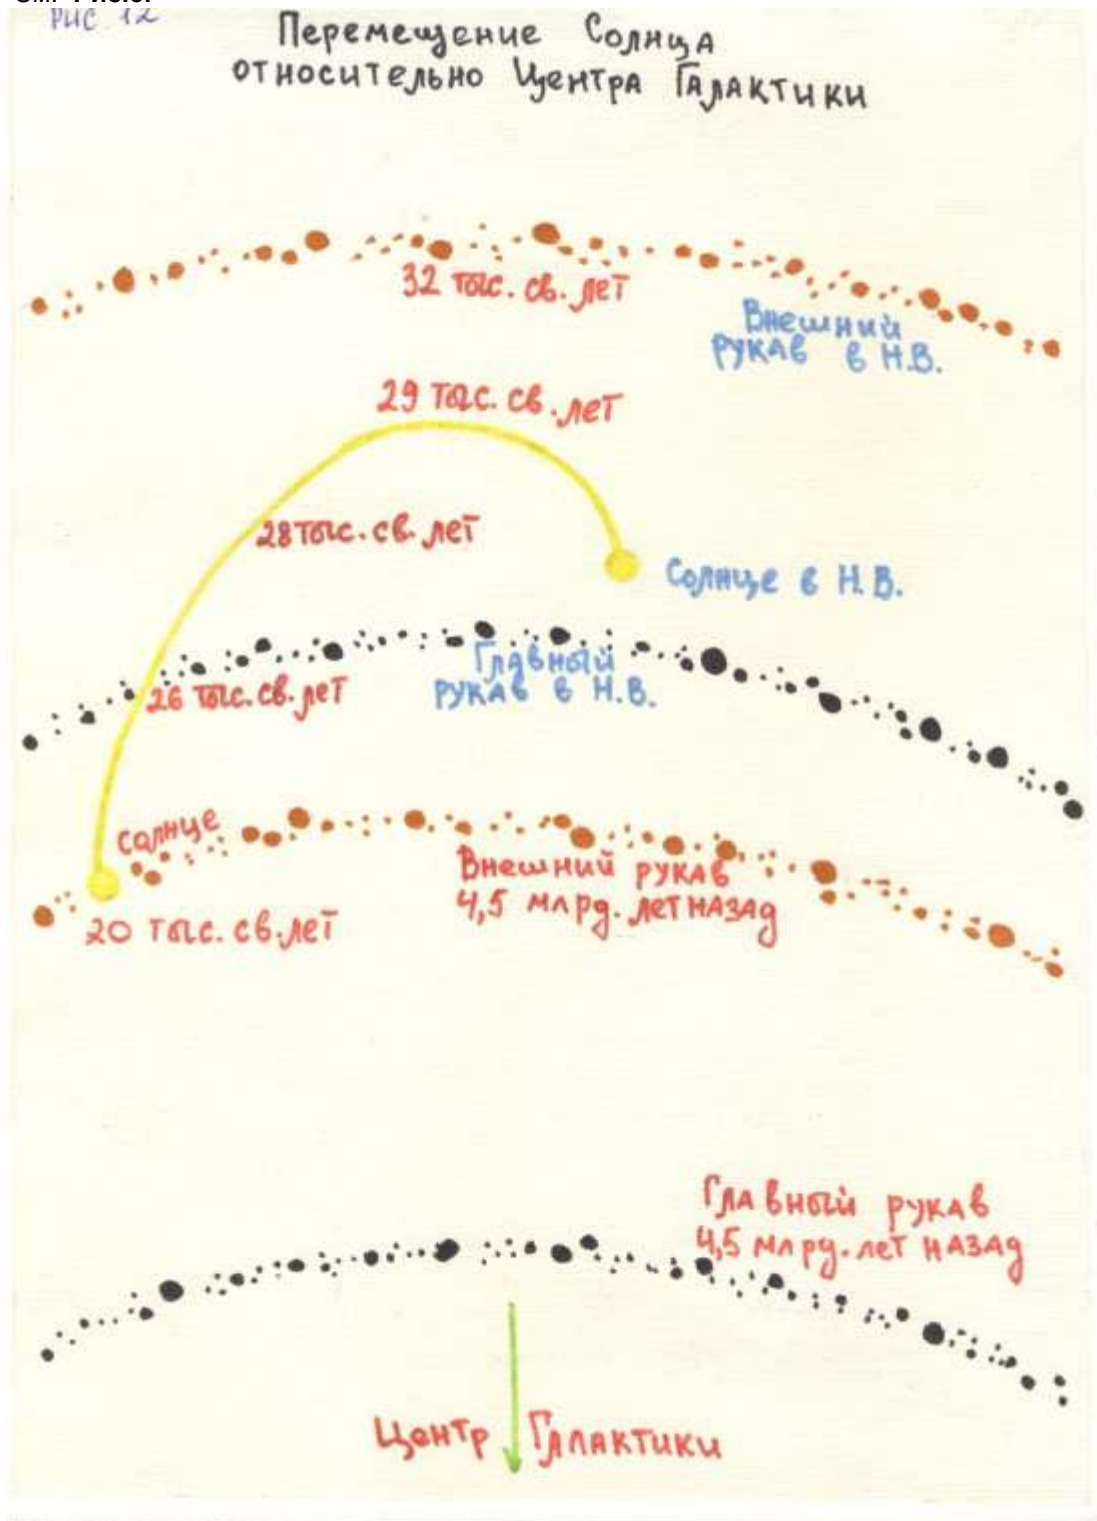 РИС. 12
Перемещение Солнца
относительно Центра Галактики
32 тыс. св. лет
Внешний
рукав в Н.В.
29 тыс. св. лет
28 тыс. св. лет
Солнце в Н.В.
Главный
рукав в Н.В.
26 тыс. св. лет
Солнце
Внешний рукав
4,5 млрд. лет назад
20 тыс. св. лет
Главный рукав
4,5 млрд. лет назад
Центр Галактики